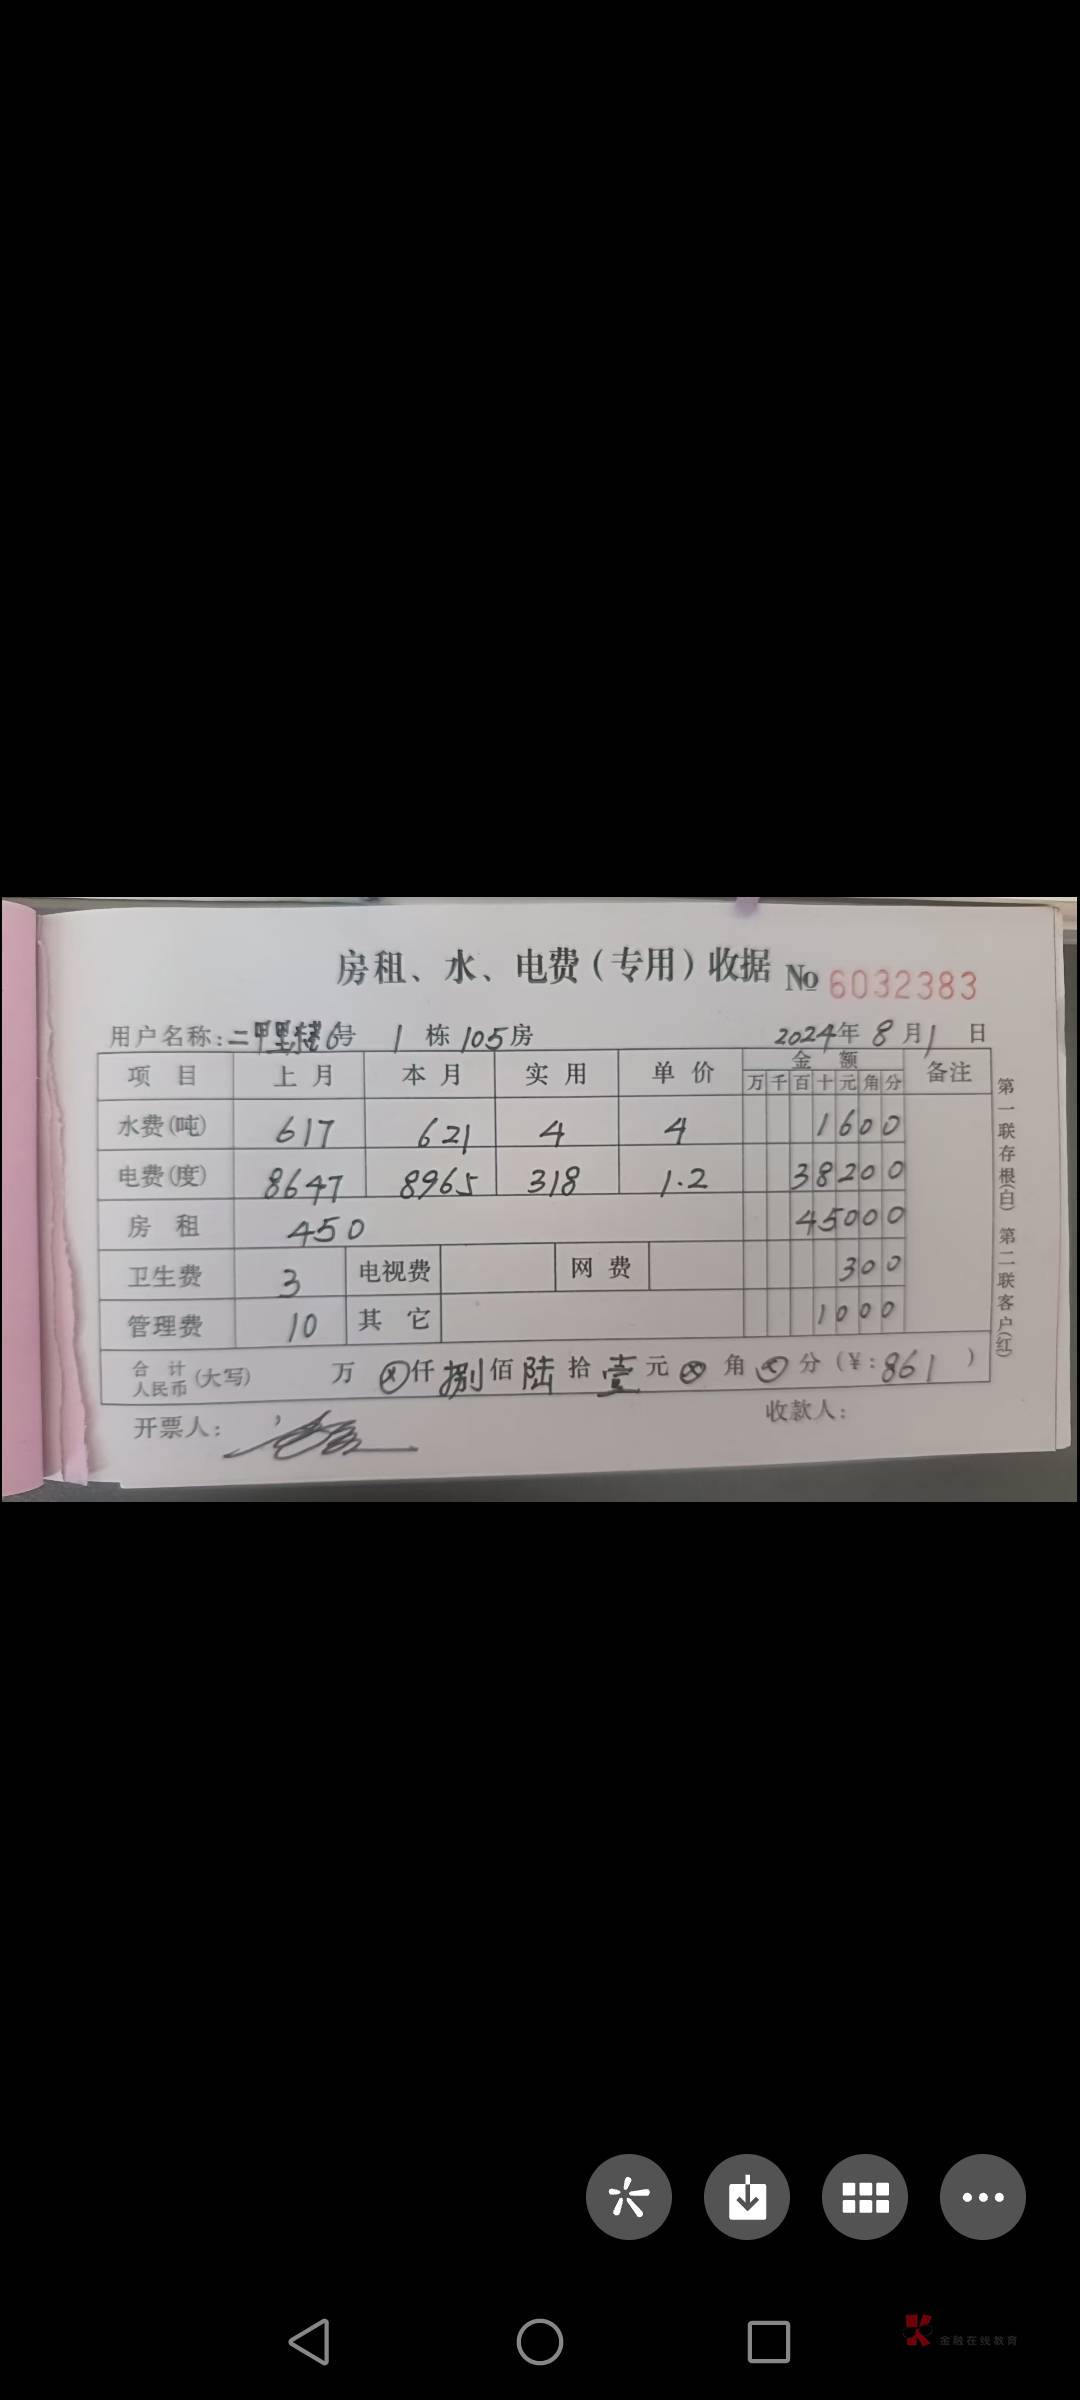 房租、水、电费(专用)收据 № 6032383
用户名称:二甲里 6号 1 栋 105 房 2024年 8 月 1 日
项 目 上 月 本 月 实 用 单 价 金 额 备注
万 千 百 十 元 角 分
水费(吨) 617 621 4 4 1600
电费(度) 8647 8965 318 1.2 38200
房 租 450 45000
卫生费 3 电视费 网 费 300
管理费 10 其 它 1000
合 计
人民币 (大写) 万 ⊗仟 捌佰 陆拾 壹元 ⊗角 分 (¥:861 )
开票人: 收款人:
第一联存根(白) 第二联客户(红)
金融在线教育